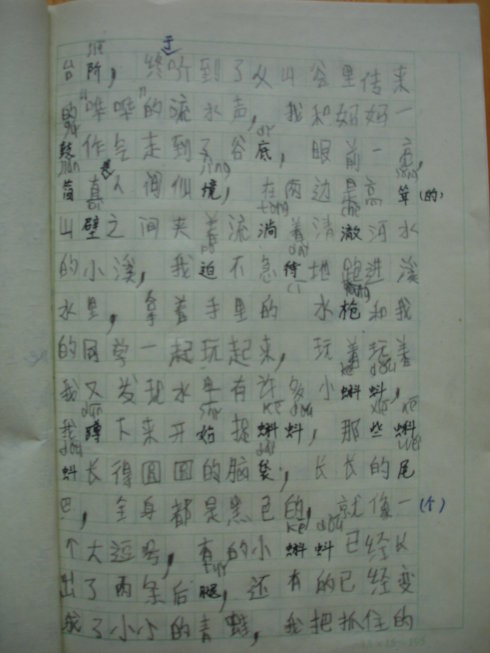 台阶，终于听到了从山谷里传来
的“哗哗”的流水声，我和好好一
鼓作气走到了谷底，眼前一亮，
简直是人间仙境，在两边是高耸(的)
山壁之间夹着流淌着清澈河水
的小溪，我迫不急待地跑进溪
水里，拿着手里的水枪和我
的同学一起玩起来，玩着玩着
我又发现水里有许多小蝌蚪，
我蹲下来开始捉蝌蚪，那些蝌
蚪长得圆圆的脑袋，长长的尾
巴，全身都是黑色的，就像一(个)
个大逗号，有的小蝌蚪已经长
出了两条后腿，还有的已经变
成了小小的青蛙，我把抓住的